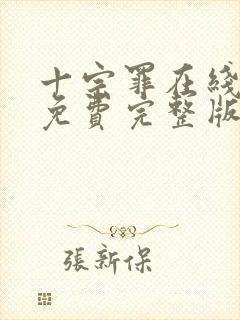 十宗罪在线
免費完整版
張新保